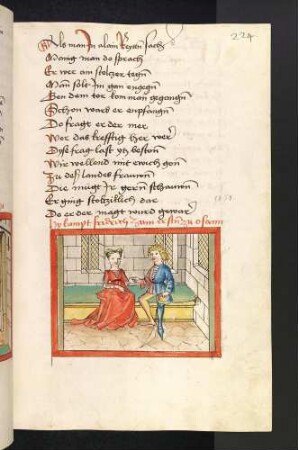 224
Als man in alain Reyten sach
Menig man do sprach
Er wer ain stoltzer tegn
Man solt Im gan engegn
Ben dem tor kom man gegangn
Schon ward er enpfangn
Do fragt er der mer
Wer das krefftig her wer
Dise frag last yetz beston
Wir wellend mit ewich gon
Zu des landes frawen
Die mugt Ir gern schawen
Er ging stoltzlich dar
Do er der magt ward gewar
Hie kampt fridrich zum ersten zu osann